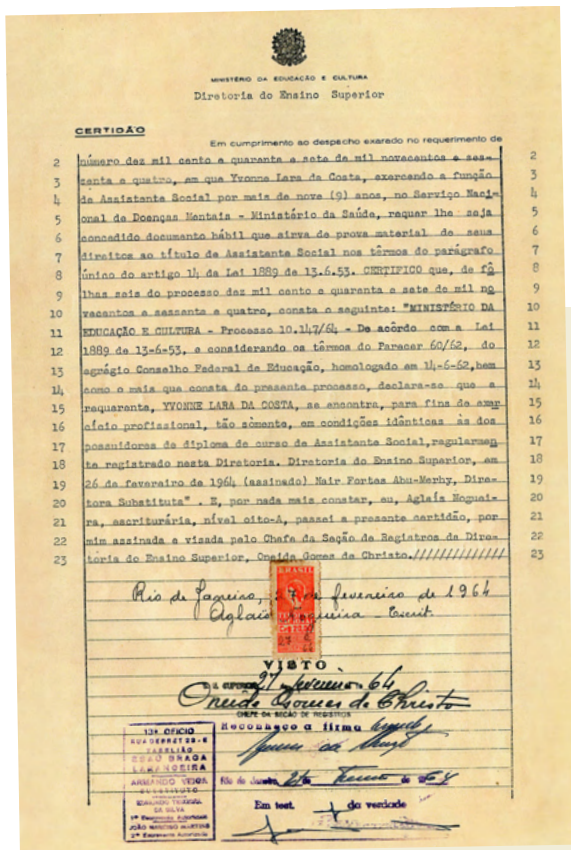 MINISTÉRIO DA EDUCAÇÃO E CULTURA
Diretoria do Ensino Superior
CERTIDÃO
Em cumprimento ao despacho exarado no requerimento de
2 número dez mil cento e quarenta e sete de mil novecentos e ses- 2
3 senta e quatro, em que Yvonne Lara da Costa, exercendo a função 3
4 de Assistente Social por mais de nove (9) anos, no Serviço Naci_ 4
5 onal de Doenças Mentais - Ministério da Saúde, requer lhe seja 5
6 concedido documento hábil que sirva de prova material de seus 6
7 direitos ao título de Assistente Social nos têrmos do parágrafo 7
8 único do artigo 14 da Lei 1889 de 13.6.53. CERTIFICO que, de fô 8
9 lhas seis do processo dez mil cento e quarenta e sete de mil no 9
10 vecentos e sessenta e quatro, consta o seguinte: "MINISTÉRIO DA 10
11 EDUCAÇÃO E CULTURA - Processo 10.147/64 - De acôrdo com a Lei 11
12 1889 de 13-6-53, e considerando os têrmos do Parecer 60/62, do 12
13 egrégio Conselho Federal de Educação, homologado em 14-6-62, bem 13
14 como o mais que consta do presente processo, declara-se que a 14
15 requerente, YVONNE LARA DA COSTA, se encontra, para fins de exer 15
16 cício profissional, tão somente, em condições idênticas às dos 16
17 possuidores de diploma de curso de Assistente Social, regularmen 17
18 te registrado nesta Diretoria. Diretoria do Ensino Superior, em 18
19 26 de fevereiro de 1964 (assinado) Nair Fortes Abu-Merhy, Dire- 19
20 tora Substituta" . E, por nada mais constar, eu, Aglaís Noguei- 20
21 ra, escriturária, nível oito-A, passei a presente certidão, por 21
22 mim assinada e visada pelo Chefe da Seção de Registros da Dire- 22
23 toria do Ensino Superior, Oneida Gomes de Christo.///////////// 23
Rio de Janeiro, 27 de fevereiro de 1964
Nogueira - Escrit.
BRASIL
VISTO
SUPERIOR 27 fevereiro 64
Oneida Gomes de Christo
CHEFE DA SEÇÃO DE REGISTROS
Reconheço a firma
Rio de Janeiro, de de 64
Em test. da verdade
13º OFICIO
TABELIÃO
BRAGA
LARANGEIRA
ARMANDO VEIGA
SUBSTITUTO
DA SILVA
1º Escrevente Autorizado
JOÃO MARTINS
2º Escrevente Autorizado